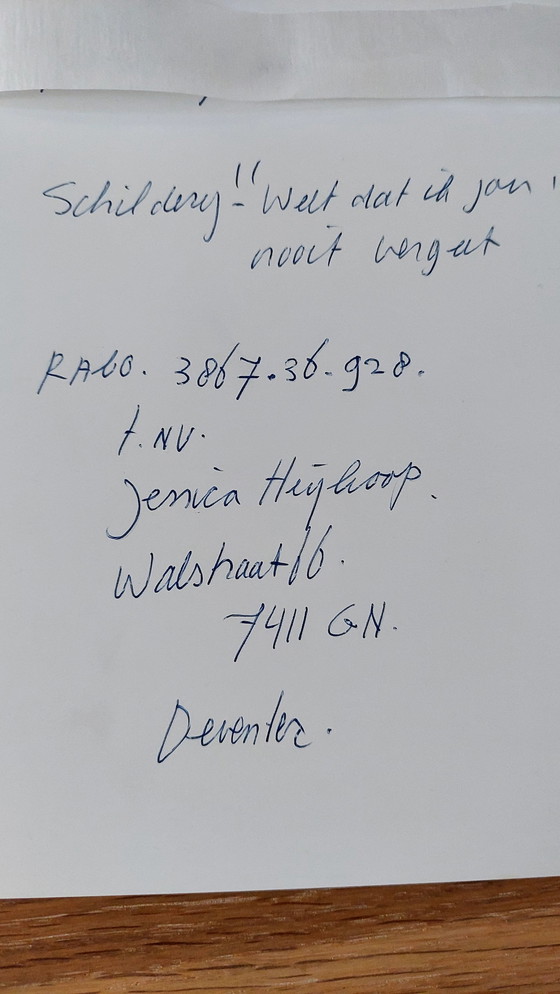 Schildery - "Weet dat ik jou
nooit vergeet
RABO. 3867.36.928.
t.nv.
Jessica Heijkoop.
Walstraat 16.
7411 GN.
Deventer.